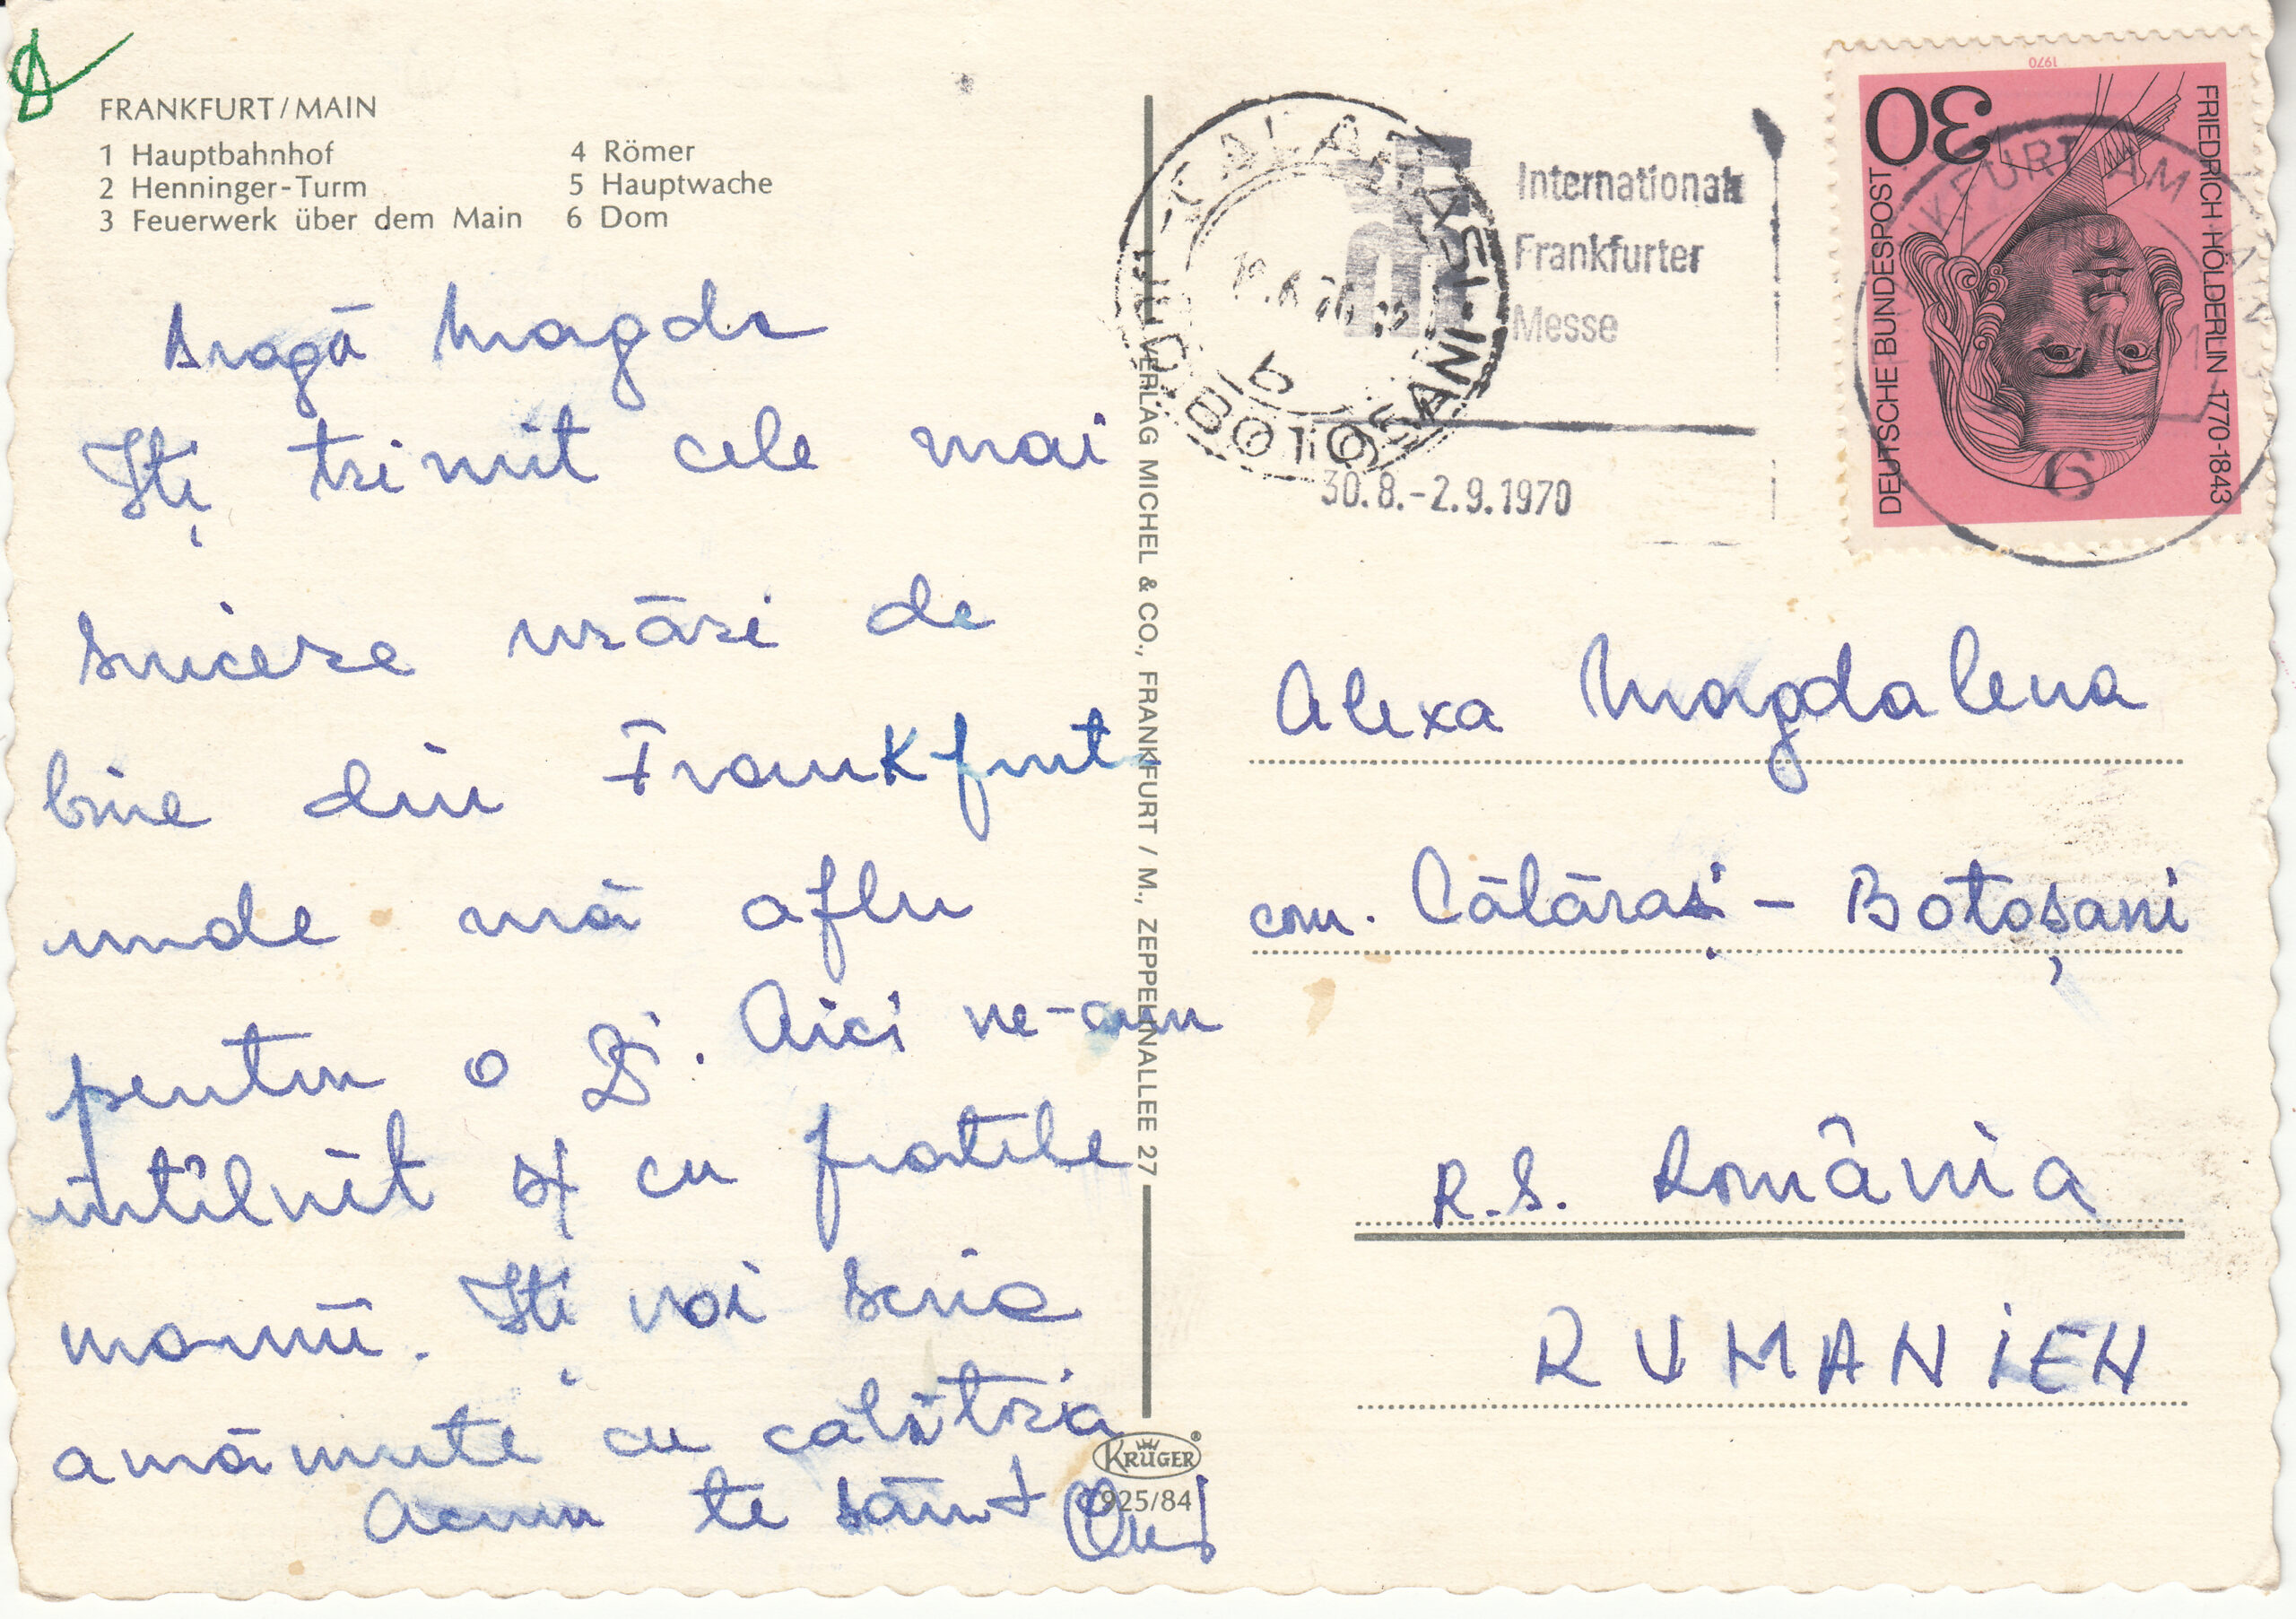 FRANKFURT/MAIN
1 Hauptbahnhof
2 Henninger-Turm
3 Feuerwerk über dem Main
4 Römer
5 Hauptwache
6 Dom
Dragă Magda
Iți trimit cele mai
sincere urări de
bine din Frankfurt
unde mă aflu
pentru o zi. Aici ne-am
intîlnit și cu fratele
mamii. Iți voi scrie
amănunte cu calătoria
Acum te sărut
VERLAG MICHEL & CO., FRANKFURT / M., ZEPPELINALLEE 27
KRÜGER
925/84
CALARASI
JUD. BOTOSANI
Internationale
Frankfurter
Messe
30.8.-2.9.1970
1970
30
DEUTSCHE BUNDESPOST
FRIEDRICH HÖLDERLIN 1770-1843
FRANKFURT AM MAIN
Alexa Magdalena
com. Călărași - Botoșani
R.S. România
RUMANIEN